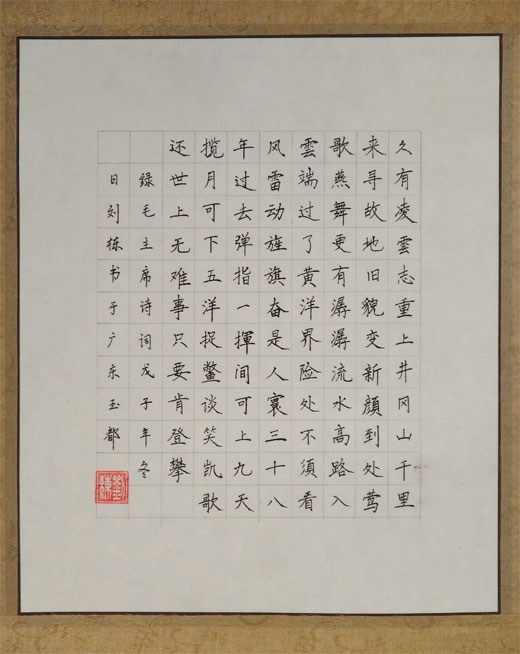 久有凌雲志重上井冈山千里
来寻故地旧貌变新顔到处莺
歌燕舞更有潺潺流水高路入
雲端过了黄洋界险处不須看
风雷动旌旗奋是人寰三十八
年过去弹指一揮间可上九天
揽月可下五洋捉鳖谈笑凯歌
还世上无难事只要肯登攀
錄毛主席诗词戊子年冬
日刘栋书于广东玉都